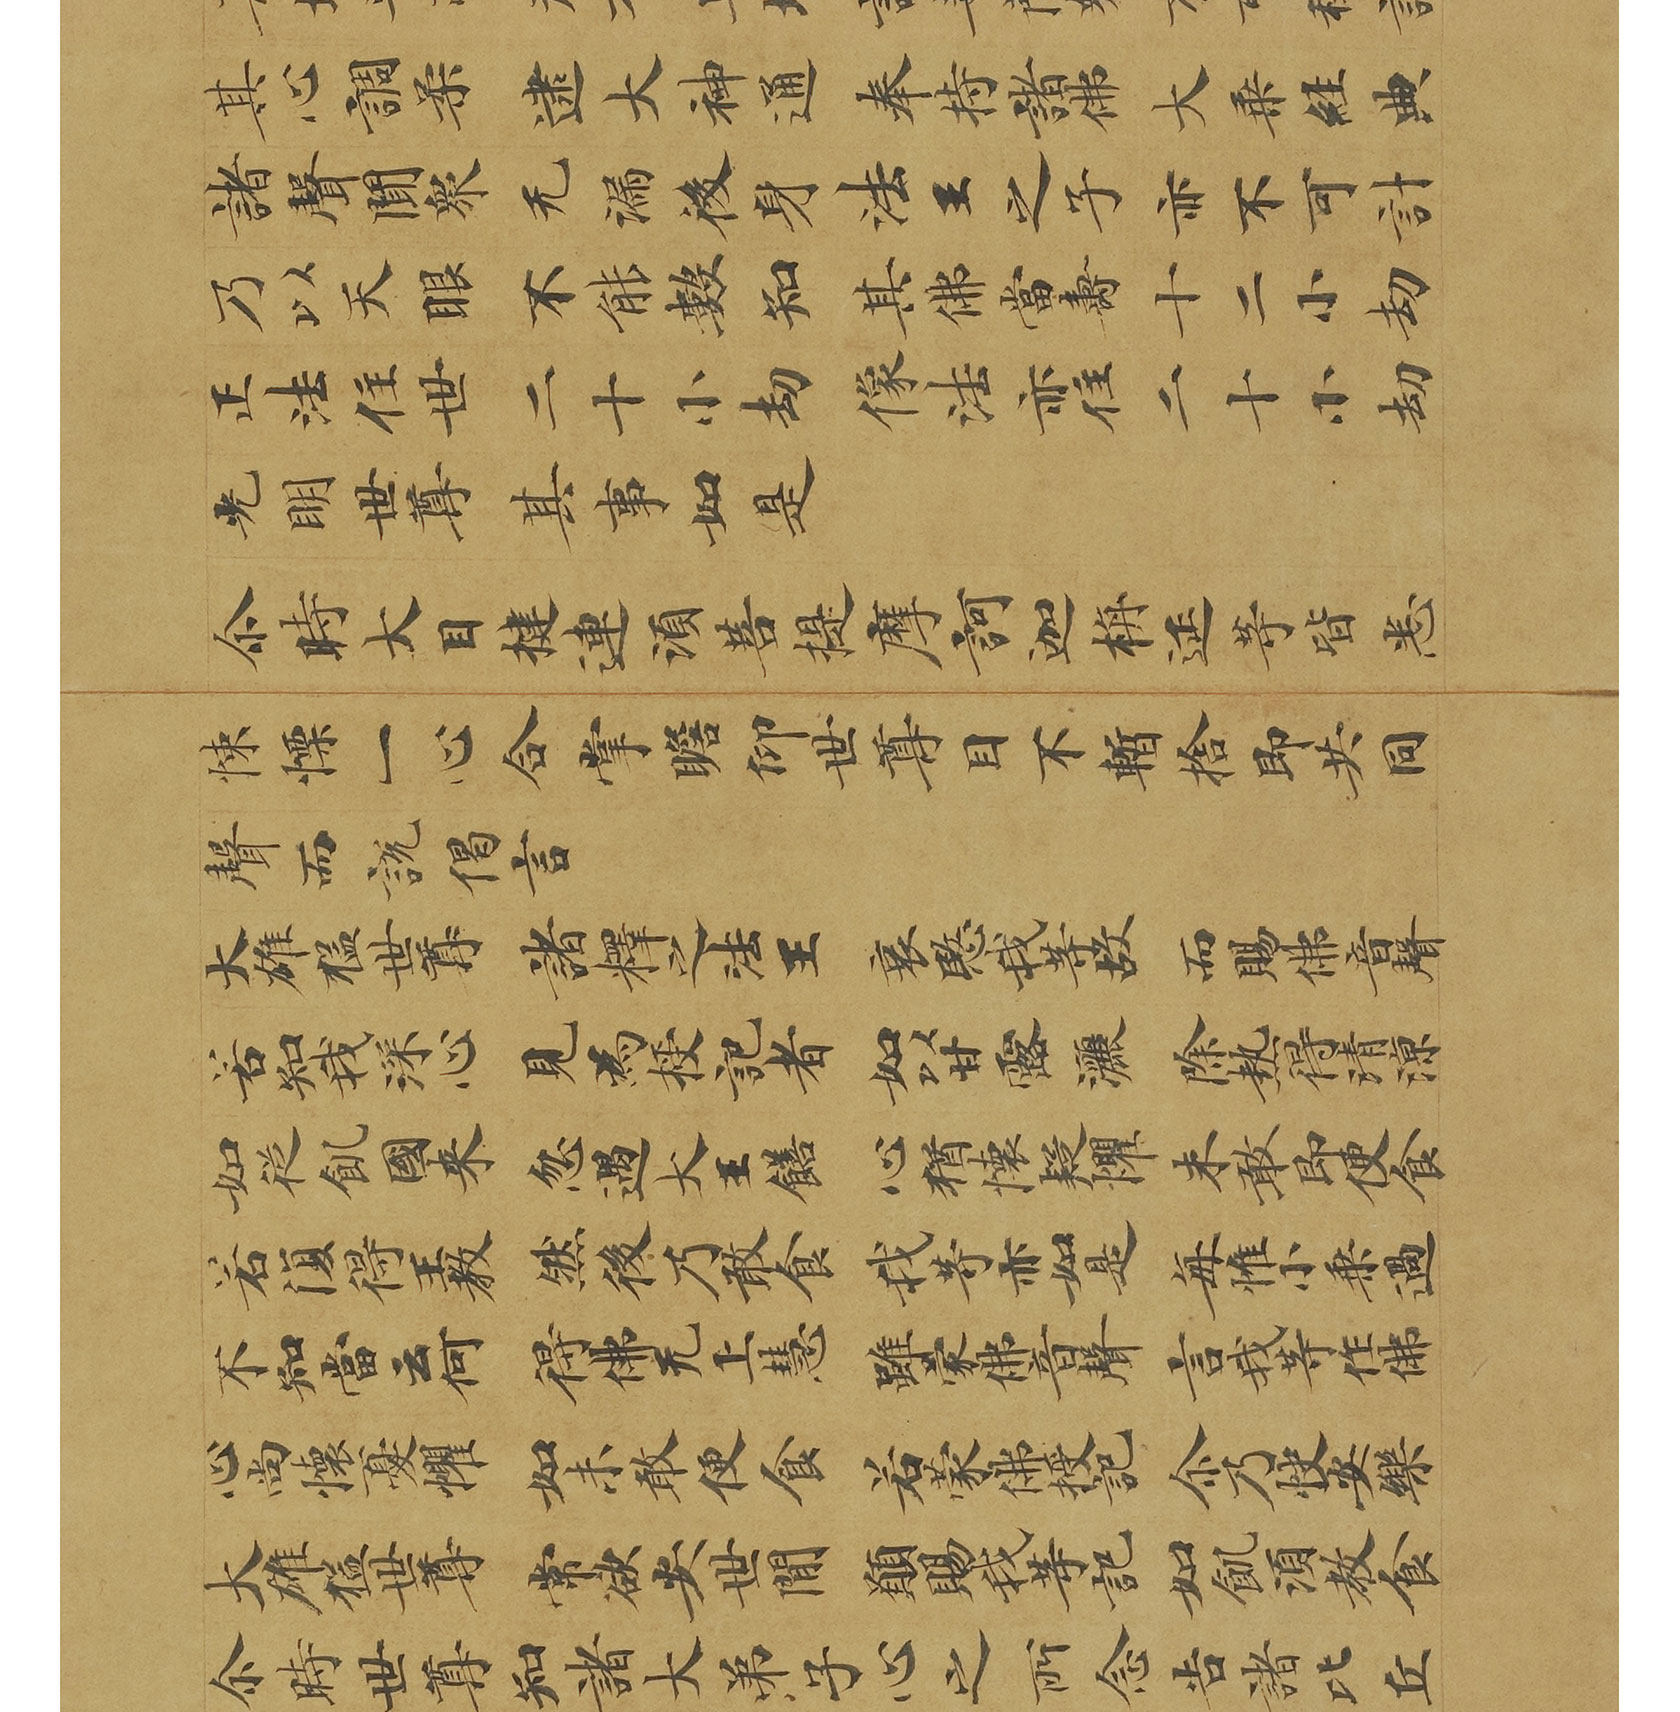 其心調柔 逮大神通 奉持諸佛 大乗經典
諸聲聞眾 无漏後身 法王之子 亦不可計
乃以天眼 不能數知 其佛當壽 十二小劫
正法住世 二十小劫 像法亦住 二十小劫
光明世尊 其事如是
尒時大目揵連湏菩提摩訶迦栴延等皆悉
悚慄一心合掌瞻仰世尊目不暫捨即共同
聲而說偈言
大雄猛世尊 諸釋之法王 哀愍我等故 而賜佛音聲
若知我深心 見為授記者 如以甘露灑 除熱得清涼
如從飢國来 忽遇大王饍 心猶懷疑懼 未敢即便食
若復得王教 然後乃敢食 我等亦如是 每惟小乗過
不知當云何 得佛无上慧 雖蒙佛音聲 言我等作佛
心尚懷憂懼 如未敢便食 若蒙佛授記 尒乃快安樂
大雄猛世尊 常欲安世間 願賜我等記 如飢湏教食
尒時世尊知諸大弟子心之所念告諸比丘